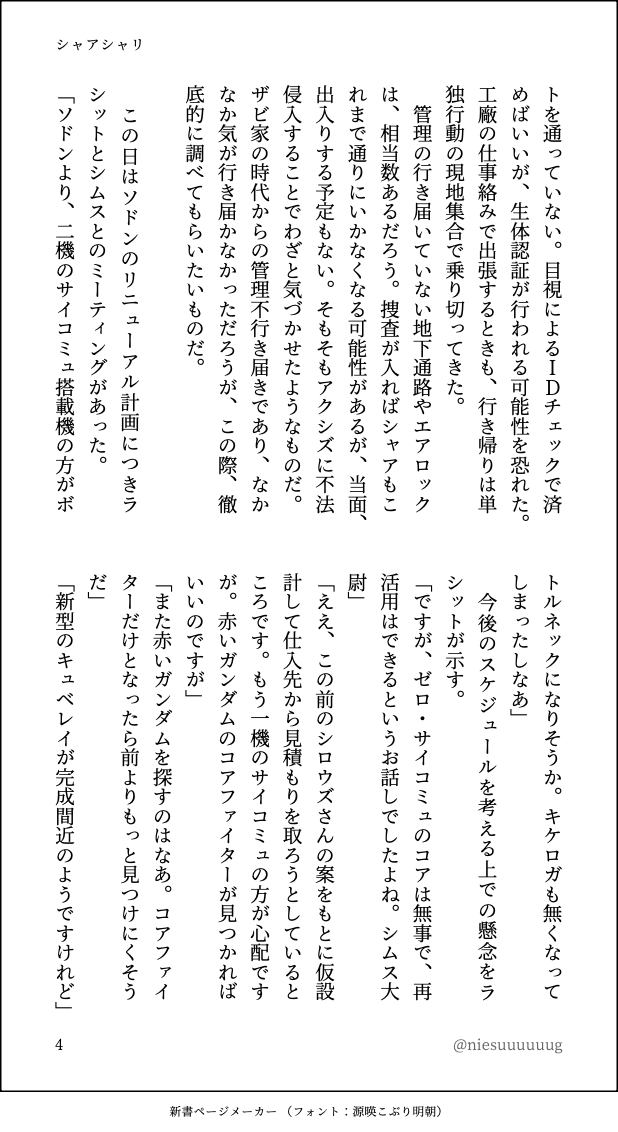 シャアシャリ
トを通っていない。目視によるＩＤチェックで済
めばいいが、生体認証が行われる可能性を恐れた。
工廠の仕事絡みで出張するときも、行き帰りは単
独行動の現地集合で乗り切ってきた。
　管理の行き届いていない地下通路やエアロック
は、相当数あるだろう。捜査が入ればシャアもこ
れまで通りにいかなくなる可能性があるが、当面、
出入りする予定もない。そもそもアクシズに不法
侵入することでわざと気づかせたようなものだ。
ザビ家の時代からの管理不行き届きであり、なか
なか気が行き届かなかっただろうが、この際、徹
底的に調べてもらいたいものだ。
　この日はソドンのリニューアル計画につきラ
シットとシムスとのミーティングがあった。
「ソドンより、二機のサイコミュ搭載機の方がボ
トルネックになりそうか。キケロガも無くなって
しまったしなあ」
　今後のスケジュールを考える上での懸念をラ
シットが示す。
「ですが、ゼロ・サイコミュのコアは無事で、再
活用はできるというお話しでしたよね。シムス大
尉」
「ええ、この前のシロウズさんの案をもとに仮設
計して仕入先から見積もりを取ろうとしていると
ころです。もう一機のサイコミュの方が心配です
が。赤いガンダムのコアファイターが見つかれば
いいのですが」
「また赤いガンダムを探すのはなあ。コアファイ
ターだけとなったら前よりもっと見つけにくそう
だ」
「新型のキュベレイが完成間近のようですけれど」
4
@niesuuuuuug
新書ページメーカー（フォント：源暎こぶり明朝）